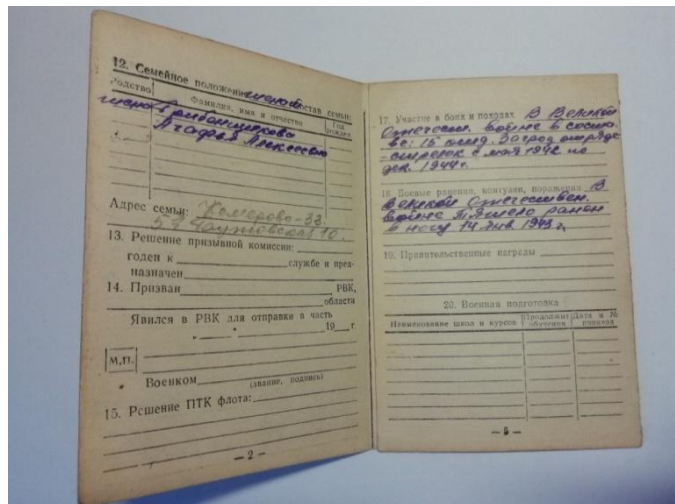 12. Семейное положение женат состав семьи:
Родство
Фамилия, имя и отчество
Год рожден.
жена
Агафья Алексеевна
Адрес семьи: Кемерово-33.
10.
13. Решение призывной комиссии:
годен к службе и пред-
назначен
14. Призван РВК,
области
Явился в РВК для отправки в часть
19 г.
М.П.
Военком
(звание, подпись)
15. Решение ПТК флота:
— 2 —
17. Участие в боях и походах В Великой
Отечествен. войне в соста-
ве: 15 отряде
-стрелок с мая 1942 по
дек. 1944 г.
18. Боевые ранения, контузии, поражения В
Великой Отечествен.
войне тяжело ранен
в ногу 14 янв. 1943 г.
19. Правительственные награды
20. Военная подготовка
Наименование школ и курсов
Продолжит. обучения
Дата и № приказа
— 5 —